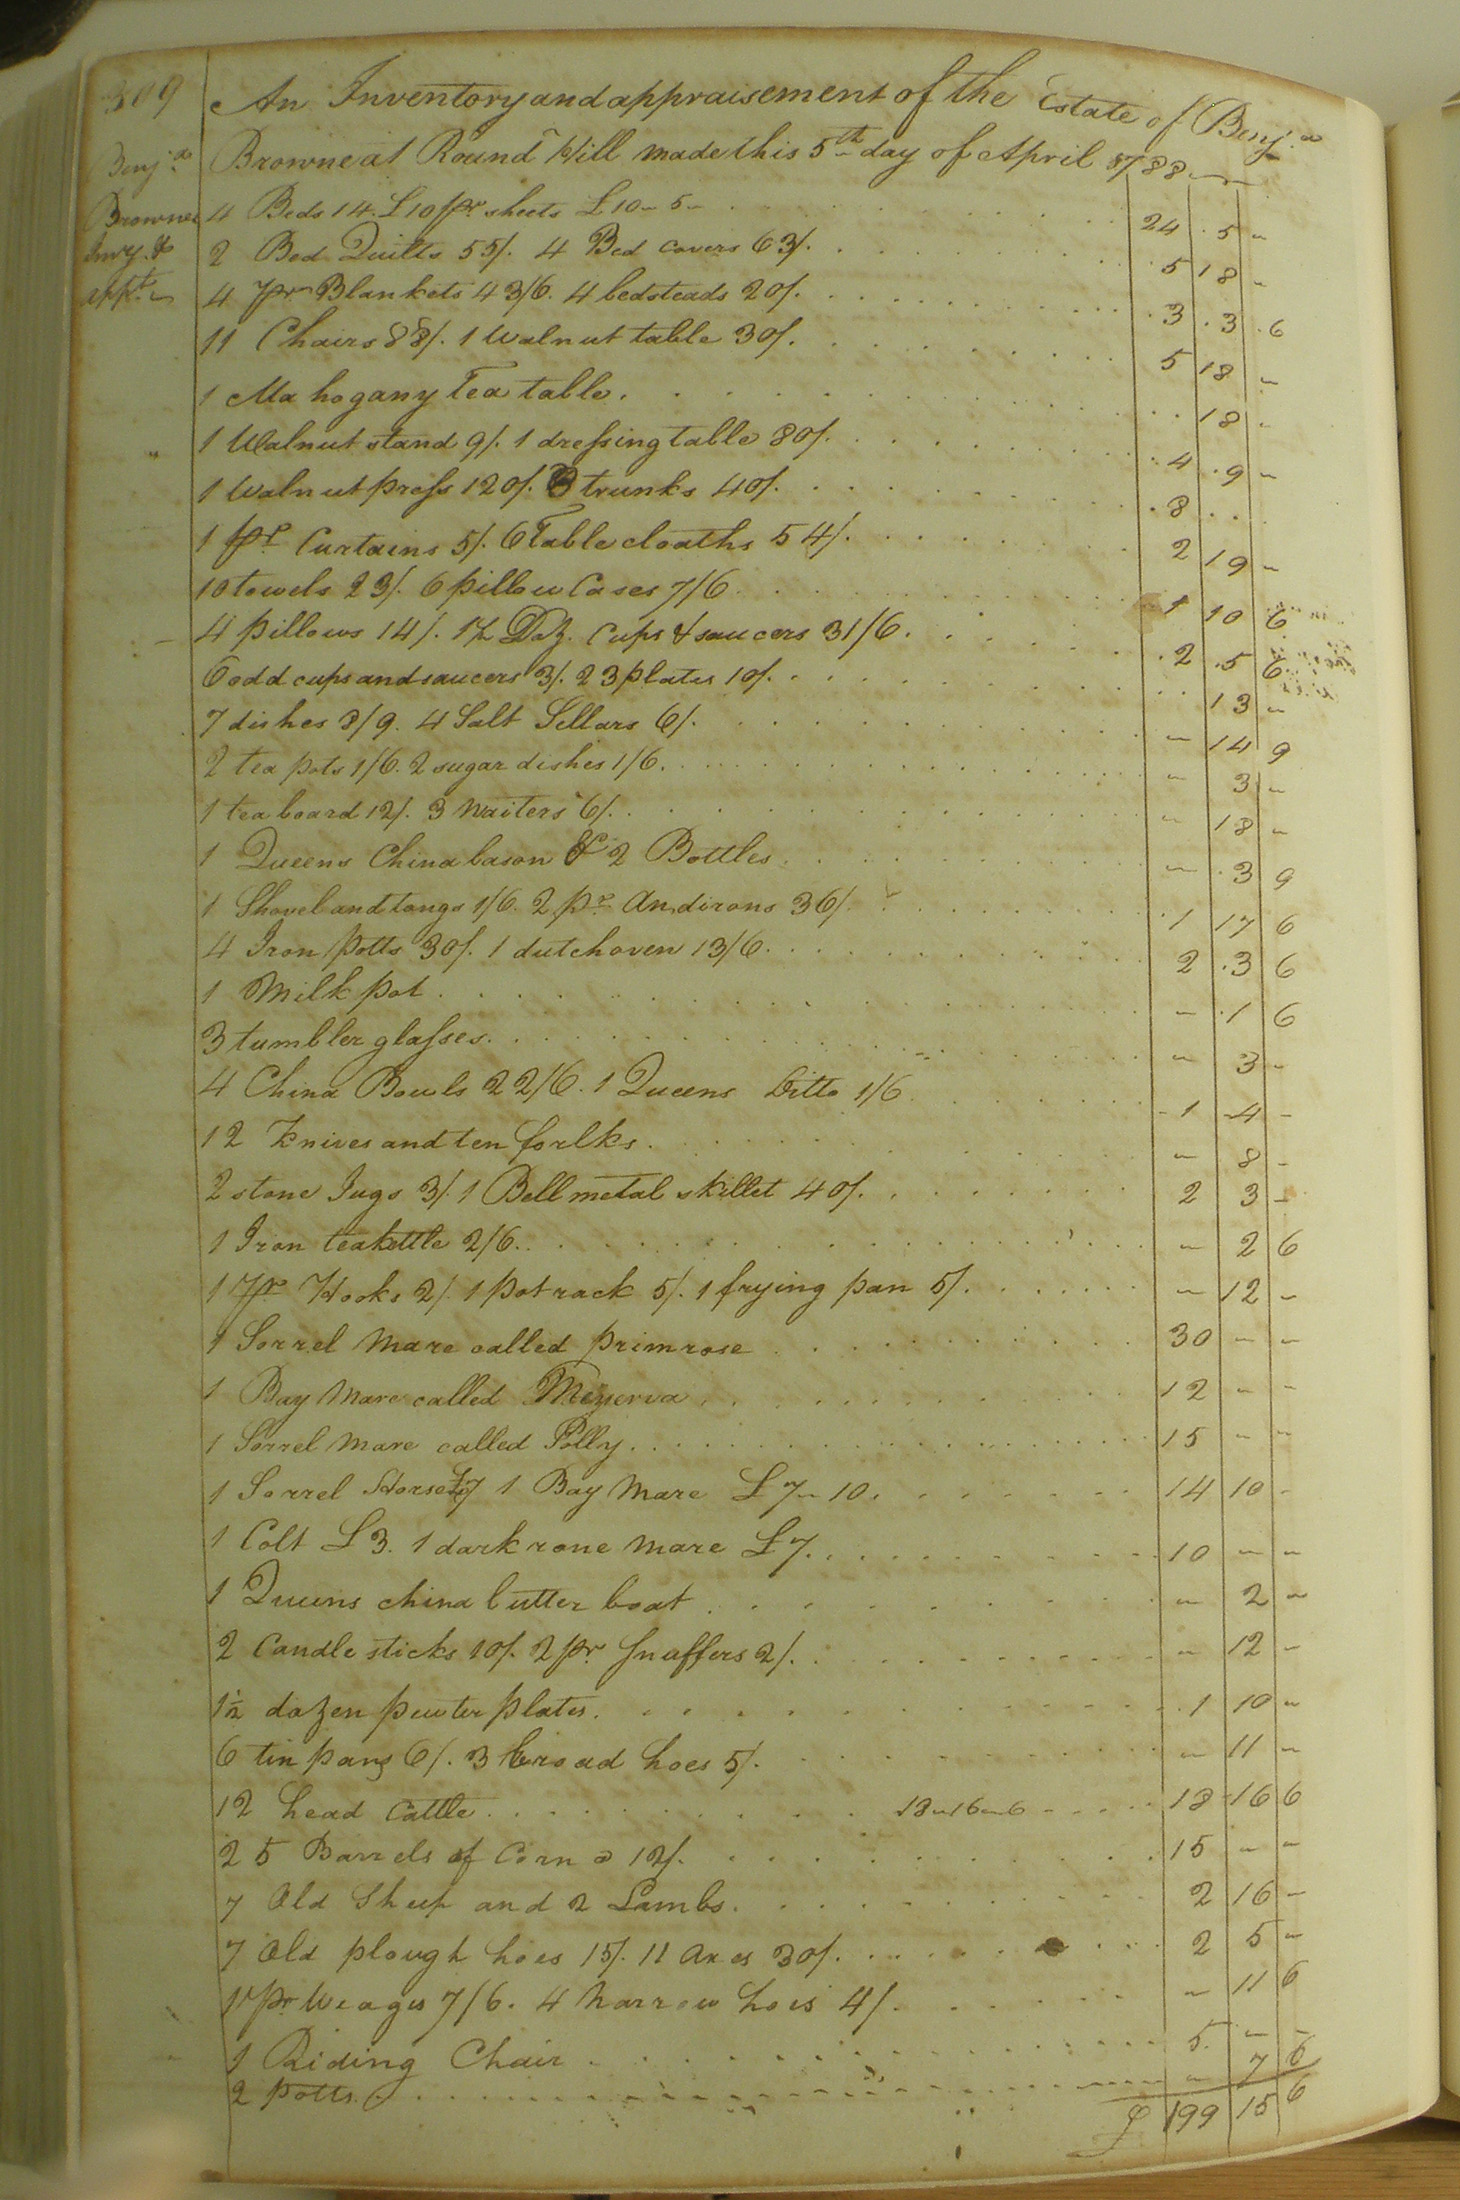 309
An Inventory and appraisement of the Estate of Benj.a
Browne at Round Hill made this 5th day of April 1788
Benj.a
Browne
Invy. &
appt.
4 Beds 14. £10 pr sheets £10-5- 24 5 -
2 Bed Quilts 55/. 4 Bed covers 63/. 5 18 -
4 pr Blankets 43/6. 4 bedsteads 20/. 3 3 6
11 Chairs 88/. 1 Walnut table 30/. 5 18 -
1 Mahogany Tea table. 18 -
1 Walnut stand 9/. 1 dressing table 80/. 4 9 -
1 Walnut press 120/. 3 trunks 40/. 8
1 pr Curtains 5/. 6 Table cloaths 54/. 2 19 -
10 towels 23/. 6 pillow Cases 7/6 1 10 6
4 pillows 14/. 1½ Doz. Cups & saucers 31/6. 2 5 6
6 odd cups and saucers 3/. 23 plates 10/. 13 -
7 dishes 8/9. 4 Salt Sellars 6/. - 14 9
2 tea pots 1/6. 2 sugar dishes 1/6. - 3 -
1 tea board 12/. 3 Waiters 6/. - 18 -
1 Queens China bason & 2 Bottles - 3 9
1 Shovel and tongs 1/6. 2 pr. Andirons 36/. 1 17 6
4 Iron Potts 30/. 1 dutch oven 13/6. 2 3 6
1 Milk pot. - 1 6
3 tumbler glasses. - 3 -
4 China Bowls 22/6. 1 Queens Ditto 1/6 1 4 -
12 Knives and ten forlks. - 8 -
2 stone Jugs 3/. 1 Bell metal skillet 40/. 2 3 -
1 Iron teakettle 2/6. - 2 6
1 pr Hooks 2/. 1 pot rack 5/. 1 frying pan 5/. - 12 -
1 Sorrel Mare called primrose 30 - -
1 Bay Mare called 12 - -
1 Sorrel Mare called Polly. 15 - -
1 Sorrel Horse £7 1 Bay Mare £7-10. 14 10 -
1 Colt £3. 1 dark rone Mare £7. 10 - -
1 Queens china butter boat - 2 -
2 Candle sticks 10/. 2 pr. Snaffers 2/. - 12 -
1½ dozen pewter plates. 1 10 -
6 tin pans 6/. 3 broad hoes 5/. - 11 -
12 head Cattle 18-16-6 18 16 6
25 Barrels of Corn a 12/. 15 - -
7 Old Sheep and 2 Lambs. 2 16 -
7 Old plough hoes 15/. 11 axes 30/. 2 5 -
1 pr Weages 7/6. 4 Narrow hoes 4/. - 11 6
1 Riding Chair 5 - -
2 potts. - 7 6
£ 199 15 6